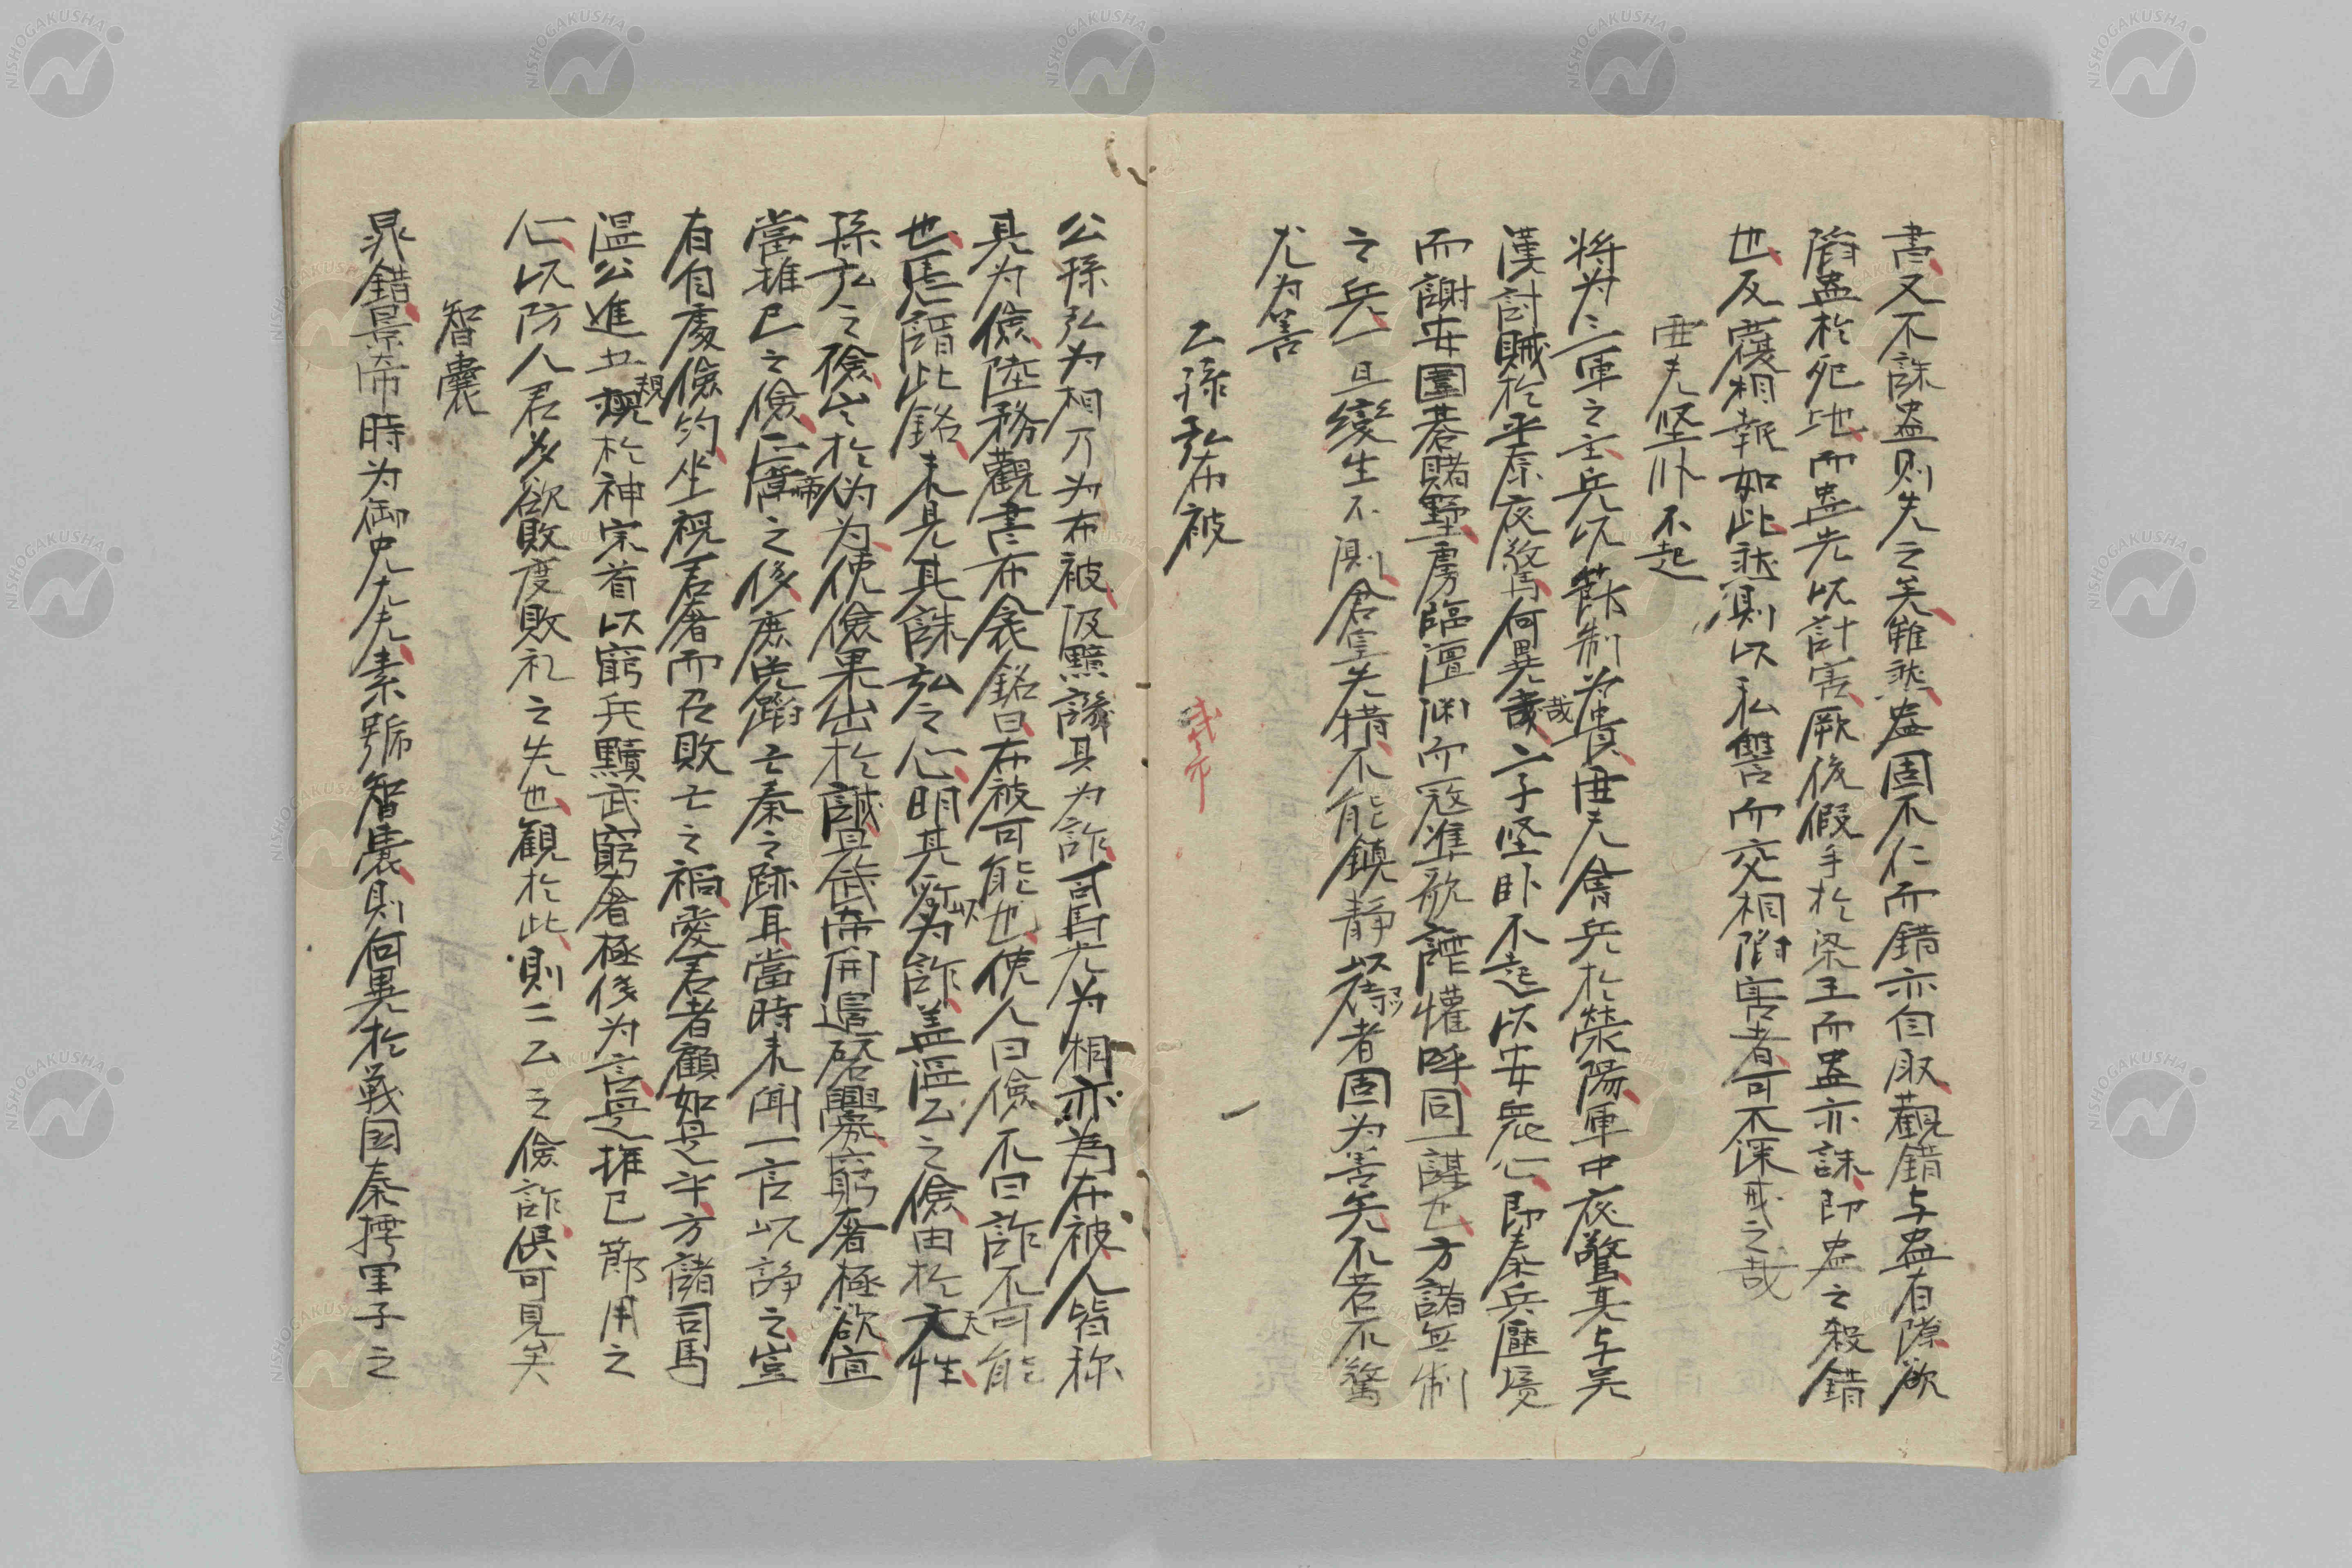 書又不誅盎則失之矣雖然盎固不仁而錯亦自取觀錯与盎有隙欲
盎於死地而盎先以計害厥後假手於梁王而盎亦誅即盎之殺錯
也反覆相報如此然則以私讐而交相陷害者可不深戒之哉
亜夫堅卧不起
将为三軍之主兵以節制为貴亜夫會兵於滎陽軍中夜驚其与吴
漢討賊於平原夜驚何異哉二子堅卧不起以安衆心即秦兵壓境
而謝安圍碁賭墅虜臨澶渊而寇準歌謔懽呼同一謀也方諸無制
之兵一旦変生不測倉皇失措不能鎮静以待者固为善矣不若不驚
尤为善
公孫弘布被
公孫弘为相乃为布被汲黯譏其为詐司馬光为相亦為布被人皆称
其为儉陸務觀書布衾銘曰布被可能也使人曰儉不曰詐不可能
也焉謂此銘未見其誅弘之心明其所以为詐盖温公之儉由於天性
孫弘之儉出於伪为使儉果出於誠是武帝開邉啓釁窮奢極欲宜
當推己之儉匡帝之侈庶免蹈亡秦之跡耳當時未聞一言以諍之豈
有自處儉約坐視君奢而召敗亡之禍愛君者顧如是乎方諸司馬
温公進立覲於神宗首以窮兵黷武窮奢極侈为言是推己節用之
心以防人君多欲敗度敗礼之失也觀於此則二公之儉詐俱可見矣
智囊
晁錯景帝時为御史大夫素号智囊則何異於戦国秦摴里子之